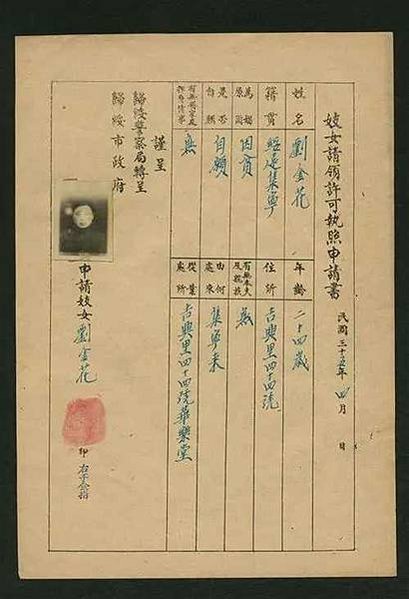 妓女請領許可執照申請書
民國三十五年四月 日
姓名 劉金花
年齡 二十四歲
籍貫 綏遠集寧
住所 吉興里四十四號
為娼原因 因貧
有無本夫及親族 無
是否自願 自願
由何處來 集寧来
有無 無
從業處所 吉興里四十四號華樂堂
謹呈
歸綏警察局轉呈
歸綏市政府
申請妓女 劉金花
印 右手食指